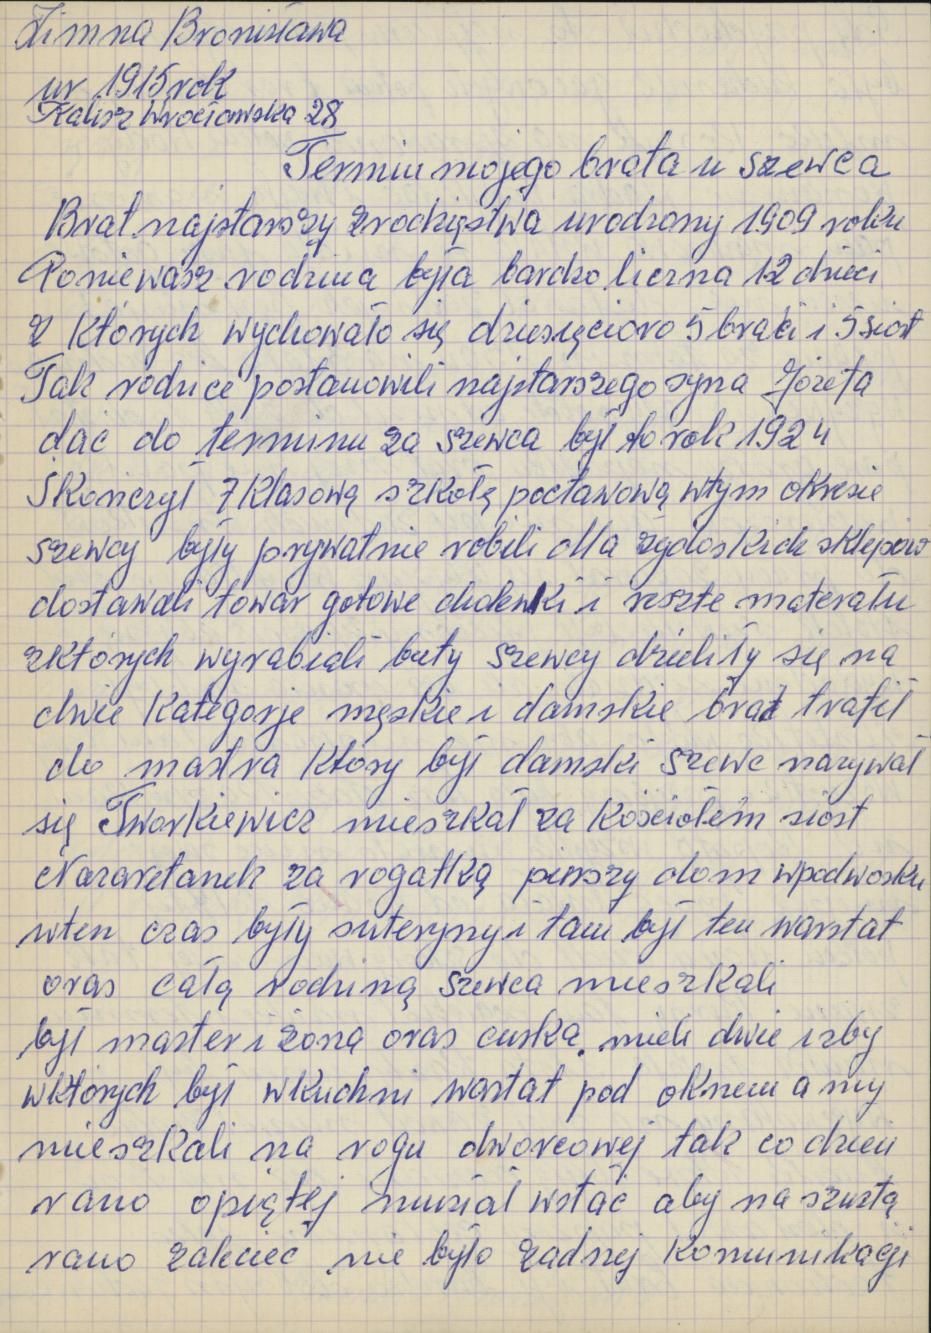 Zimna Bronisława
ur 1915 rok
Kalisz Wrocławska 28
Termin mojego brata u szewca
Brat najstarszy zrodzęstwa urodzony 1909 roku
Poniewasz rodzina była bardzo liczna 12 dzieci
z których wychowało się dziesięcioro 5 braci i 5 siost
Tak rodzice postanowili najstarszego syna Józefa
dać do terminu za szewca był to rok 1924
Skończył 7 klasową szkołę poctawową wtym okresie
szewcy były prywatnie robili dla żydoskich sklepów
dostawali towar gotowe cholewki i reszte materału
zktórych wyrabiali buty szewcy dzieliły się na
dwie kategorje męskie i damskie brat trafił
do mastra który był damski szewc nazywał
się Tworkiewicz mieszkał za kościołem siost
Nazaretanek za rogatką pirszy dom wpodwosku
wten czas były suteryny i tam był ten warstat
oras całą rodziną szewca mieszkali
był master i żoną oras curką. mieli dwie izby
wktórych był wkuchni warstat pod oknem a my
mieszkali na rogu dworcowej tak co dzień
rano opiątej musiał wstać aby na szustą
rano zalecieć nie było żadnej komunikacji